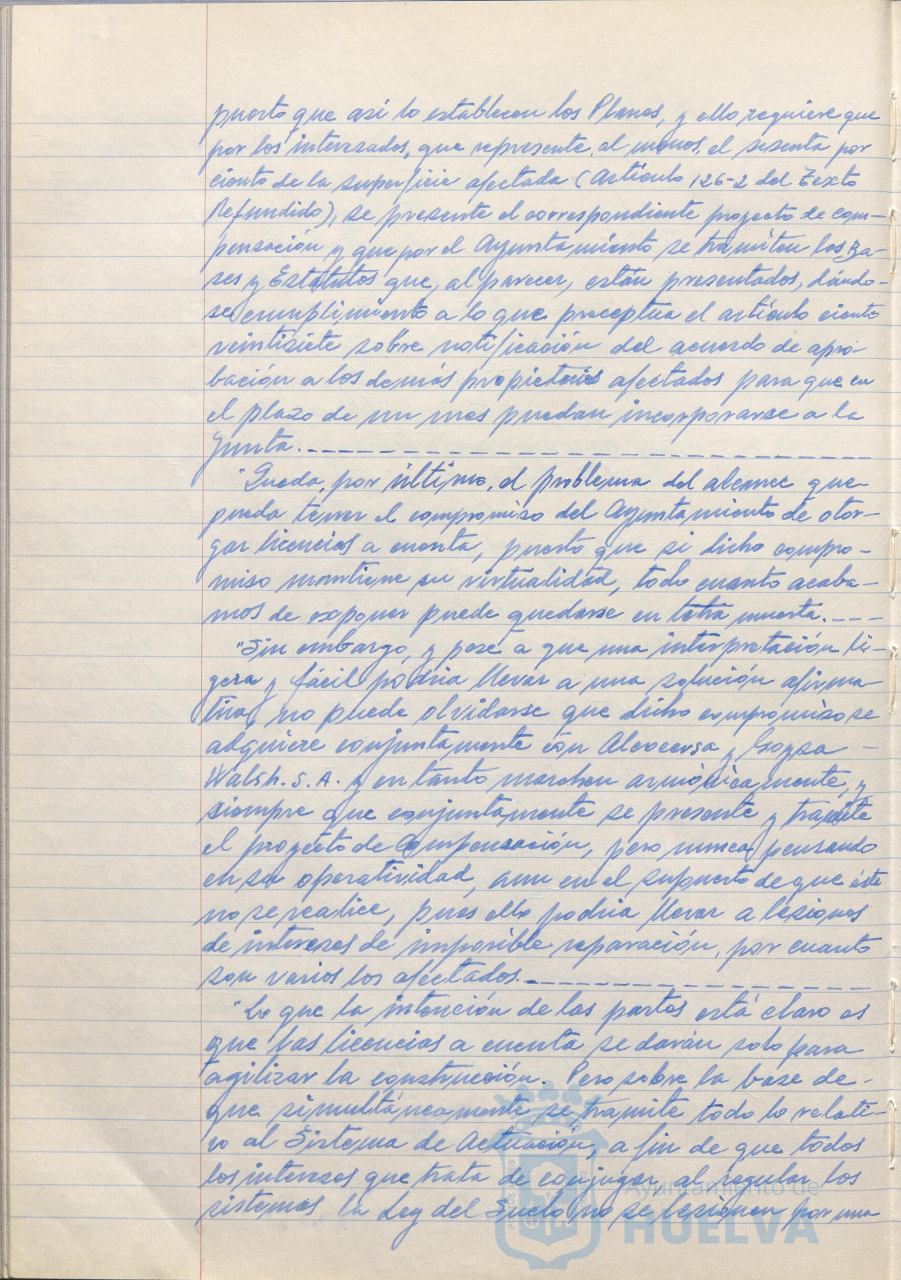 puesto que así lo establecen los Planes, y ello requiere que
por los interesados, que represente, al menos, el sesenta por
ciento de la superficie afectada (Artículo 126-2 del Texto
Refundido), se presente el correspondiente proyecto de com-
pensación y que por el Ayuntamiento se tramiten las Ba-
ses y Estatutos que, al parecer, están presentados, dándo-
se cumplimiento a lo que preceptua el artículo ciento
veintisiete sobre notificación del acuerdo de apro-
bación a los demás propietarios afectados para que en
el plazo de un mes puedan incorporarse a la
Junta.
"Queda, por último, el problema del alcance que
pueda tener el compromiso del Ayuntamiento de otor-
gar licencias a cuenta, puesto que si dicho compro-
miso mantiene su virtualidad, todo cuanto acaba-
mos de exponer puede quedarse en letra muerta.
"Sin embargo, y pese a que una interpretación li-
gera y fácil podría llevar a una solución afirma-
tiva, no puede olvidarse que dicho compromiso se
adquiere conjuntamente con Alcocersa y
Walsh. S.A. y en tanto marchen armónicamente, y
siempre que conjuntamente se presente y tramite
el proyecto de Compensación, pero nunca pensando
en su operatividad, aun en el supuesto de que éste
no se realice, pues ello podría llevar a lesiones
de intereses de imposible reparación, por cuanto
son varios los afectados.
"Lo que la intención de las partes está claro es
que las licencias a cuenta se darán solo para
agilizar la construcción. Pero sobre la base de
que simultáneamente se tramite todo lo relati-
vo al Sistema de Actuación, a fin de que todos
los intereses que trata de conjugar, al regular los
sistemas la Ley del Suelo, no se lesionen por una
Ayuntamiento de
HUELVA